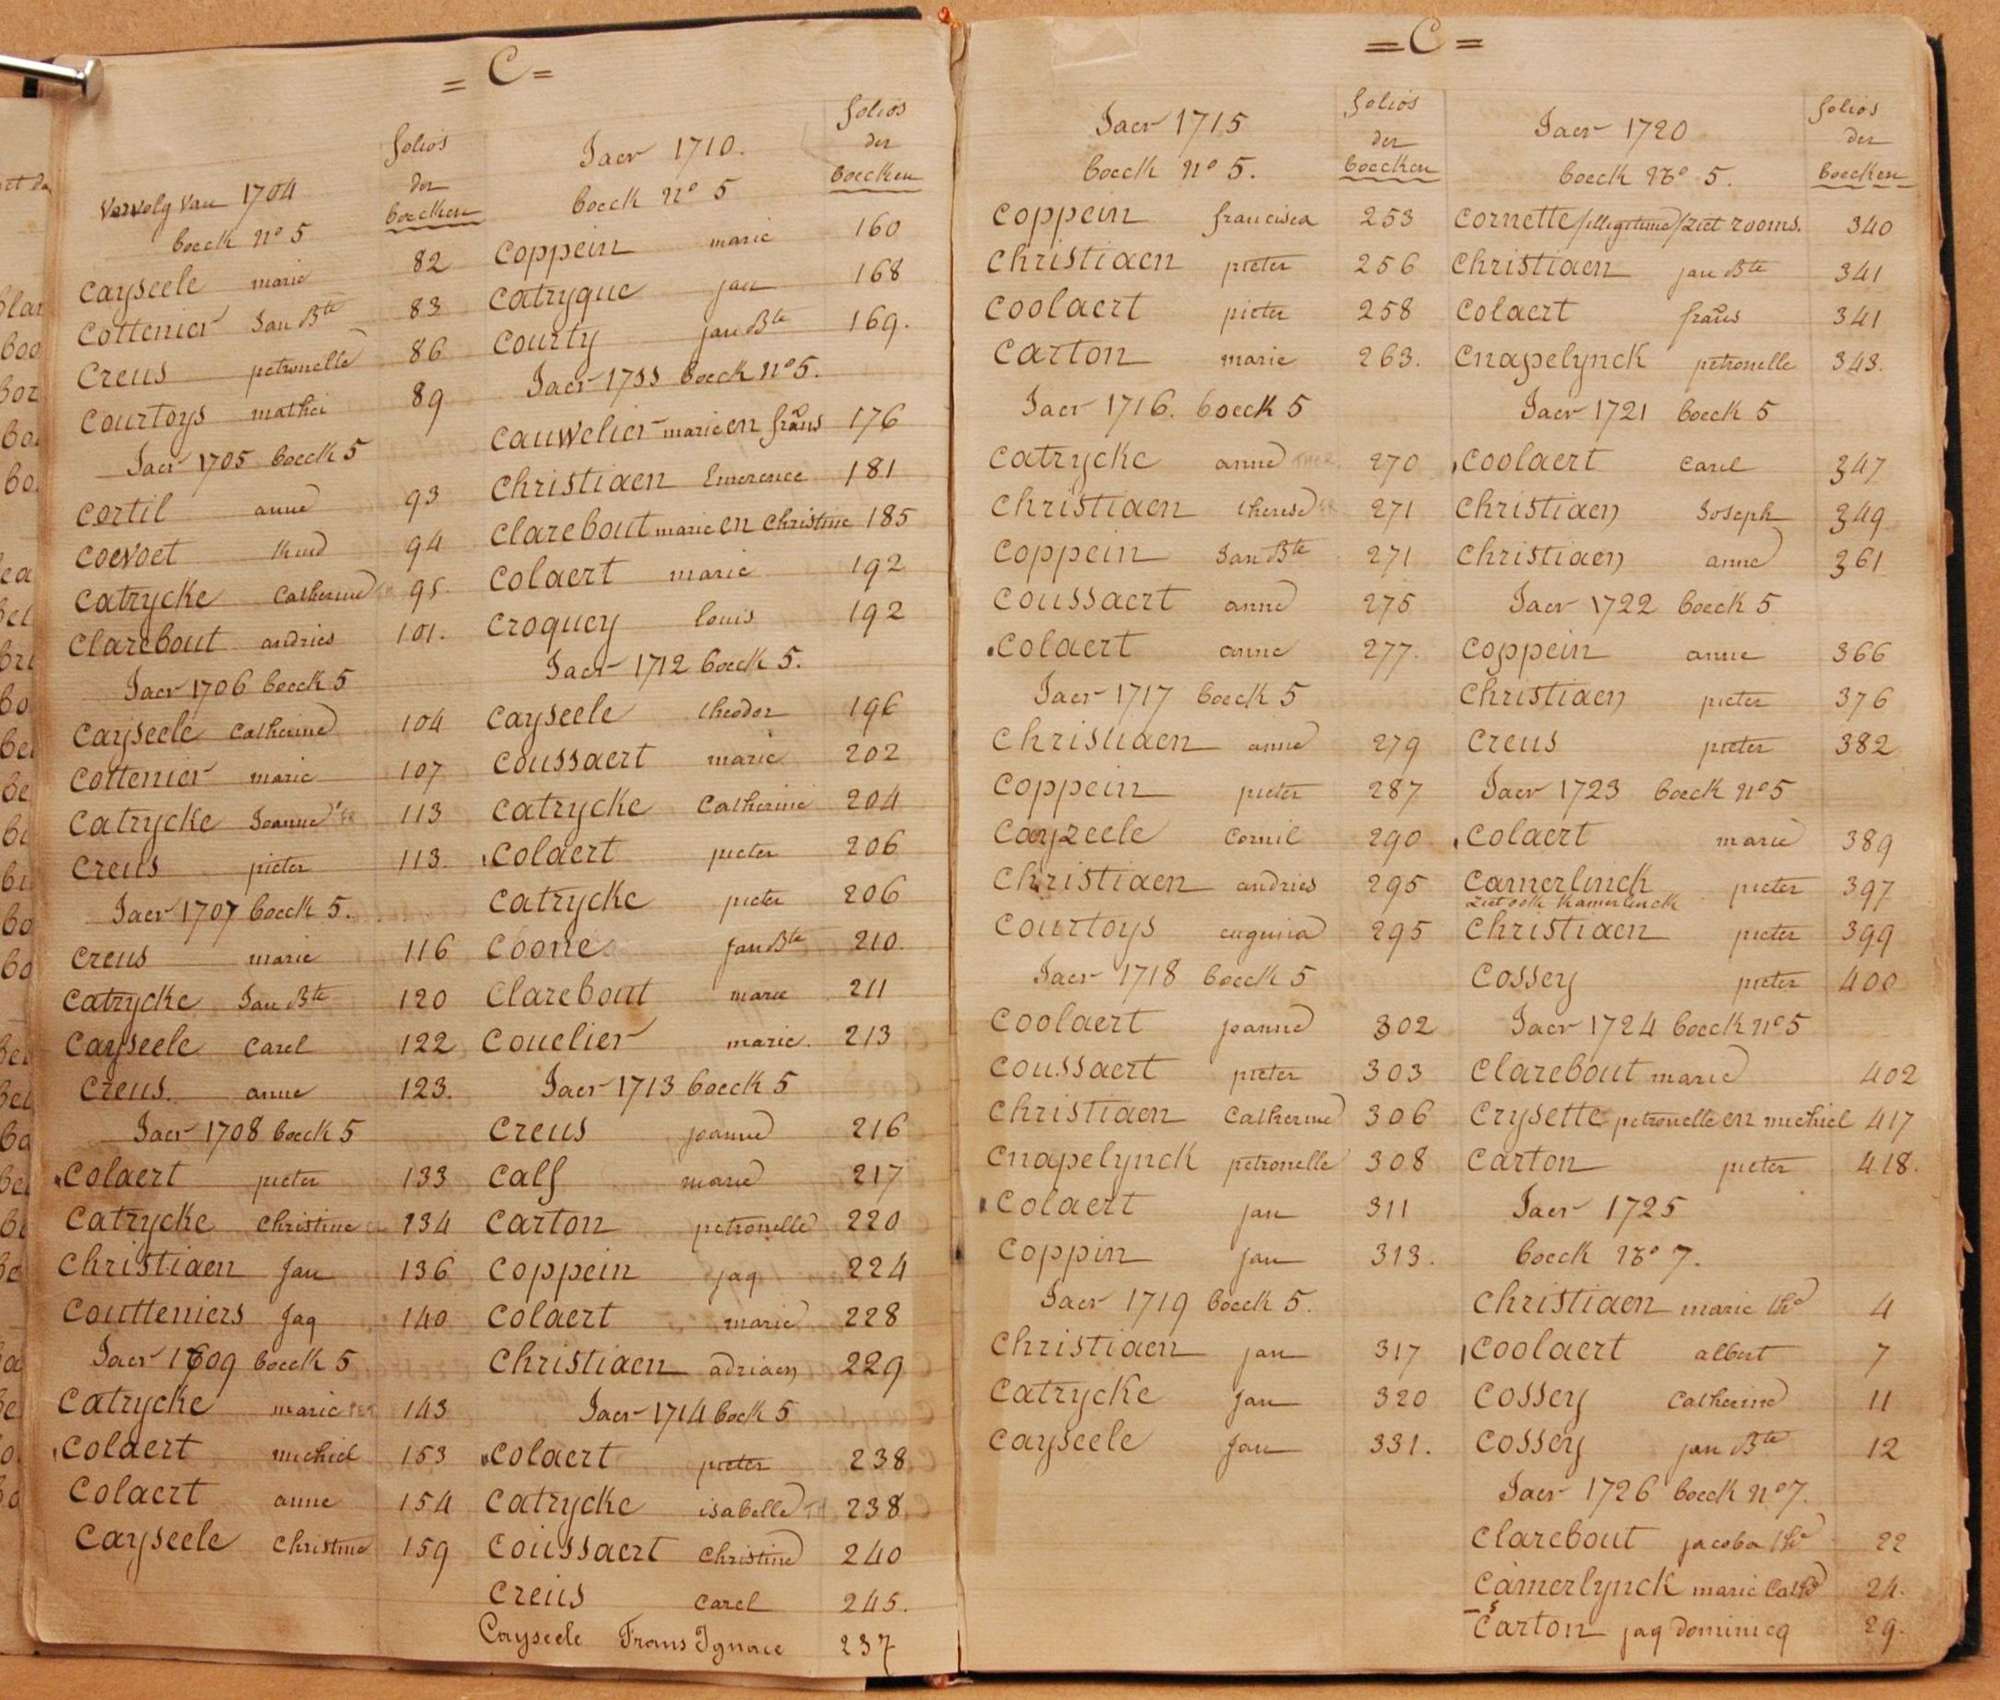 = C =
folios
der
boecken
vervolg van 1704
boeck nº 5
cayseele marie 82
cottenier Jan Bte 83
creus petronelle 86
courtoys mathei 89
Jaer 1705 boeck 5
cortil anne 93
coevoet 94
catrycke catherine 95
clarebout andries 101.
Jaer 1706 boeck 5
cayseele catherine 104
cottenier marie 107
catrycke Joanne 113
creus pieter 113.
Jaer 1707 boeck 5.
creus marie 116
catrycke Jan Bte 120
cayseele carel 122
creus. anne 123.
Jaer 1708 boeck 5
colaert pieter 133
catrycke christine 134
christiaen Jan 136
coutteniers Jaq 140
Jaer 1709 boeck 5
catrycke marie 143
colaert michiel 153
colaert anne 154
cayseele christine 159
folios
der
boecken
Jaer 1710.
boeck nº 5
coppein marie 160
catryque jan 168
courty jan Bte 169.
Jaer 1711 boeck nº 5.
cauwelier marie en frans 176
christiaen Emerence 181
clarebout marie en christine 185
colaert marie 192
croquey louis 192
Jaer 1712 boeck 5.
cayseele theodor 196
coussaert marie 202
catrycke catherine 204
colaert pieter 206
catrycke pieter 206
coone jan Bte 210.
clarebout marie 211
couelier marie. 213
Jaer 1713 boeck 5
creus joanne 216
calf marie 217
carton petronelle 220
coppein jaq 224
colaert marie 228
christiaen adriaen 229
Jaer 1714 boeck 5
colaert pieter 238
catrycke isabelle 238
coussaert christine 240
creus carel 245.
Cayseele Frans Ignace 237
= C =
folios
der
boecken
Jaer 1715
boeck nº 5.
coppein francisca 253
christiaen pieter 256
coolaert pieter 258
carton marie 263.
Jaer 1716. boeck 5
catrycke anne 270
christiaen therese 271
coppein Jan Bte 271
coussaert anne 275
colaert anne 277.
Jaer 1717 boeck 5
christiaen anne 279
coppein pieter 287
cayzeele cornil 290
christiaen andries 295
courtoys eugenia 295
Jaer 1718 boeck 5
coolaert joanne 302
coussaert pieter 303
christiaen catherine 306
cnapelynck petronelle 308
colaert jan 311
coppin jan 313.
Jaer 1719 boeck 5.
christiaen jan 317
catrycke Jan 320
cayseele Jan 331.
folios
der
boecken
Jaer 1720
boeck nº 5.
cornette /illegitime/ziet rooms. 340
christiaen jan Bte 341
colaert frans 341
cnapelynck petronelle 343.
Jaer 1721 boeck 5
coolaert carel 347
christiaen Joseph 349
christiaen anne 361
Jaer 1722 boeck 5
coppein anne 366
christiaen pieter 376
creus pieter 382
Jaer 1723 boeck nº 5
colaert marie 389
camerlinck pieter 397
ziet ook kamerlinck
christiaen pieter 399
cossey pieter 400
Jaer 1724 boeck nº 5
clarebout marie 402
crysette petronelle en michiel 417
carton pieter 418.
Jaer 1725
boeck nº 7.
christiaen marie the 4
coolaert albert 7
cossey catherine 11
cossey jan Bte 12
Jaer 1726 boeck nº 7.
clarebout jacoba 22
camerlynck marie cathe 24.
carton jaq dominicq 29.